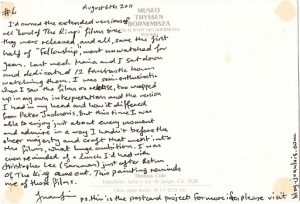 #6
August 6th 2011
I'd owned the extended versions
of all "Lord of The Rings" films since
they were released and all, save the first
half of "Fellowship," went unwatched for
years. Last week Maria and I sat down
and dedicated 12 fantastic hours
watching them. I was semi-enthusiastic
when I saw the films on release, too wrapped
up in my own interpretations and the version
I had in my head and how it differed
from Peter Jackson's. But this time I was
able to enjoy just about every moment
and admire in a way I hadn't before the
sheer majesty and craft that went into
the films, what huge ambition. I was
even reminded of a lunch I'd had with
Christopher Lee (Saruman) just after Return
of The King came out. This painting reminds
me of those films.
ps. this is the postcard project for more info please visit
MUSEO
THYSSEN
BORNEMISZA
Thomas Cole